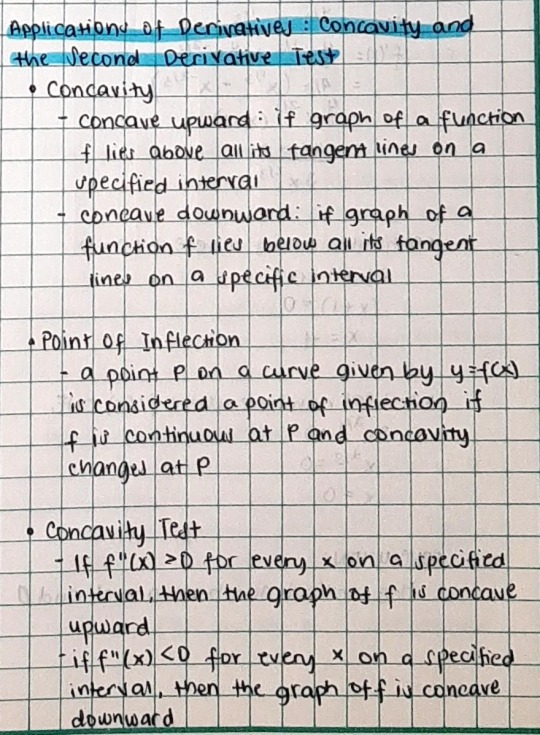 Applications of Derivatives: Concavity and
the Second Derivative Test
• Concavity
- concave upward: if graph of a function
f lies above all its tangent lines on a
specified interval
- concave downward: if graph of a
function f lies below all its tangent
lines on a specific interval
• Point of Inflection
- a point P on a curve given by y=f(x)
is considered a point of inflection if
f is continuous at P and concavity
changes at P
• Concavity Test
- If f"(x) >0 for every x on a specified
interval, then the graph of f is concave
upward
- if f"(x) <0 for every x on a specified
interval, then the graph of f is concave
downward